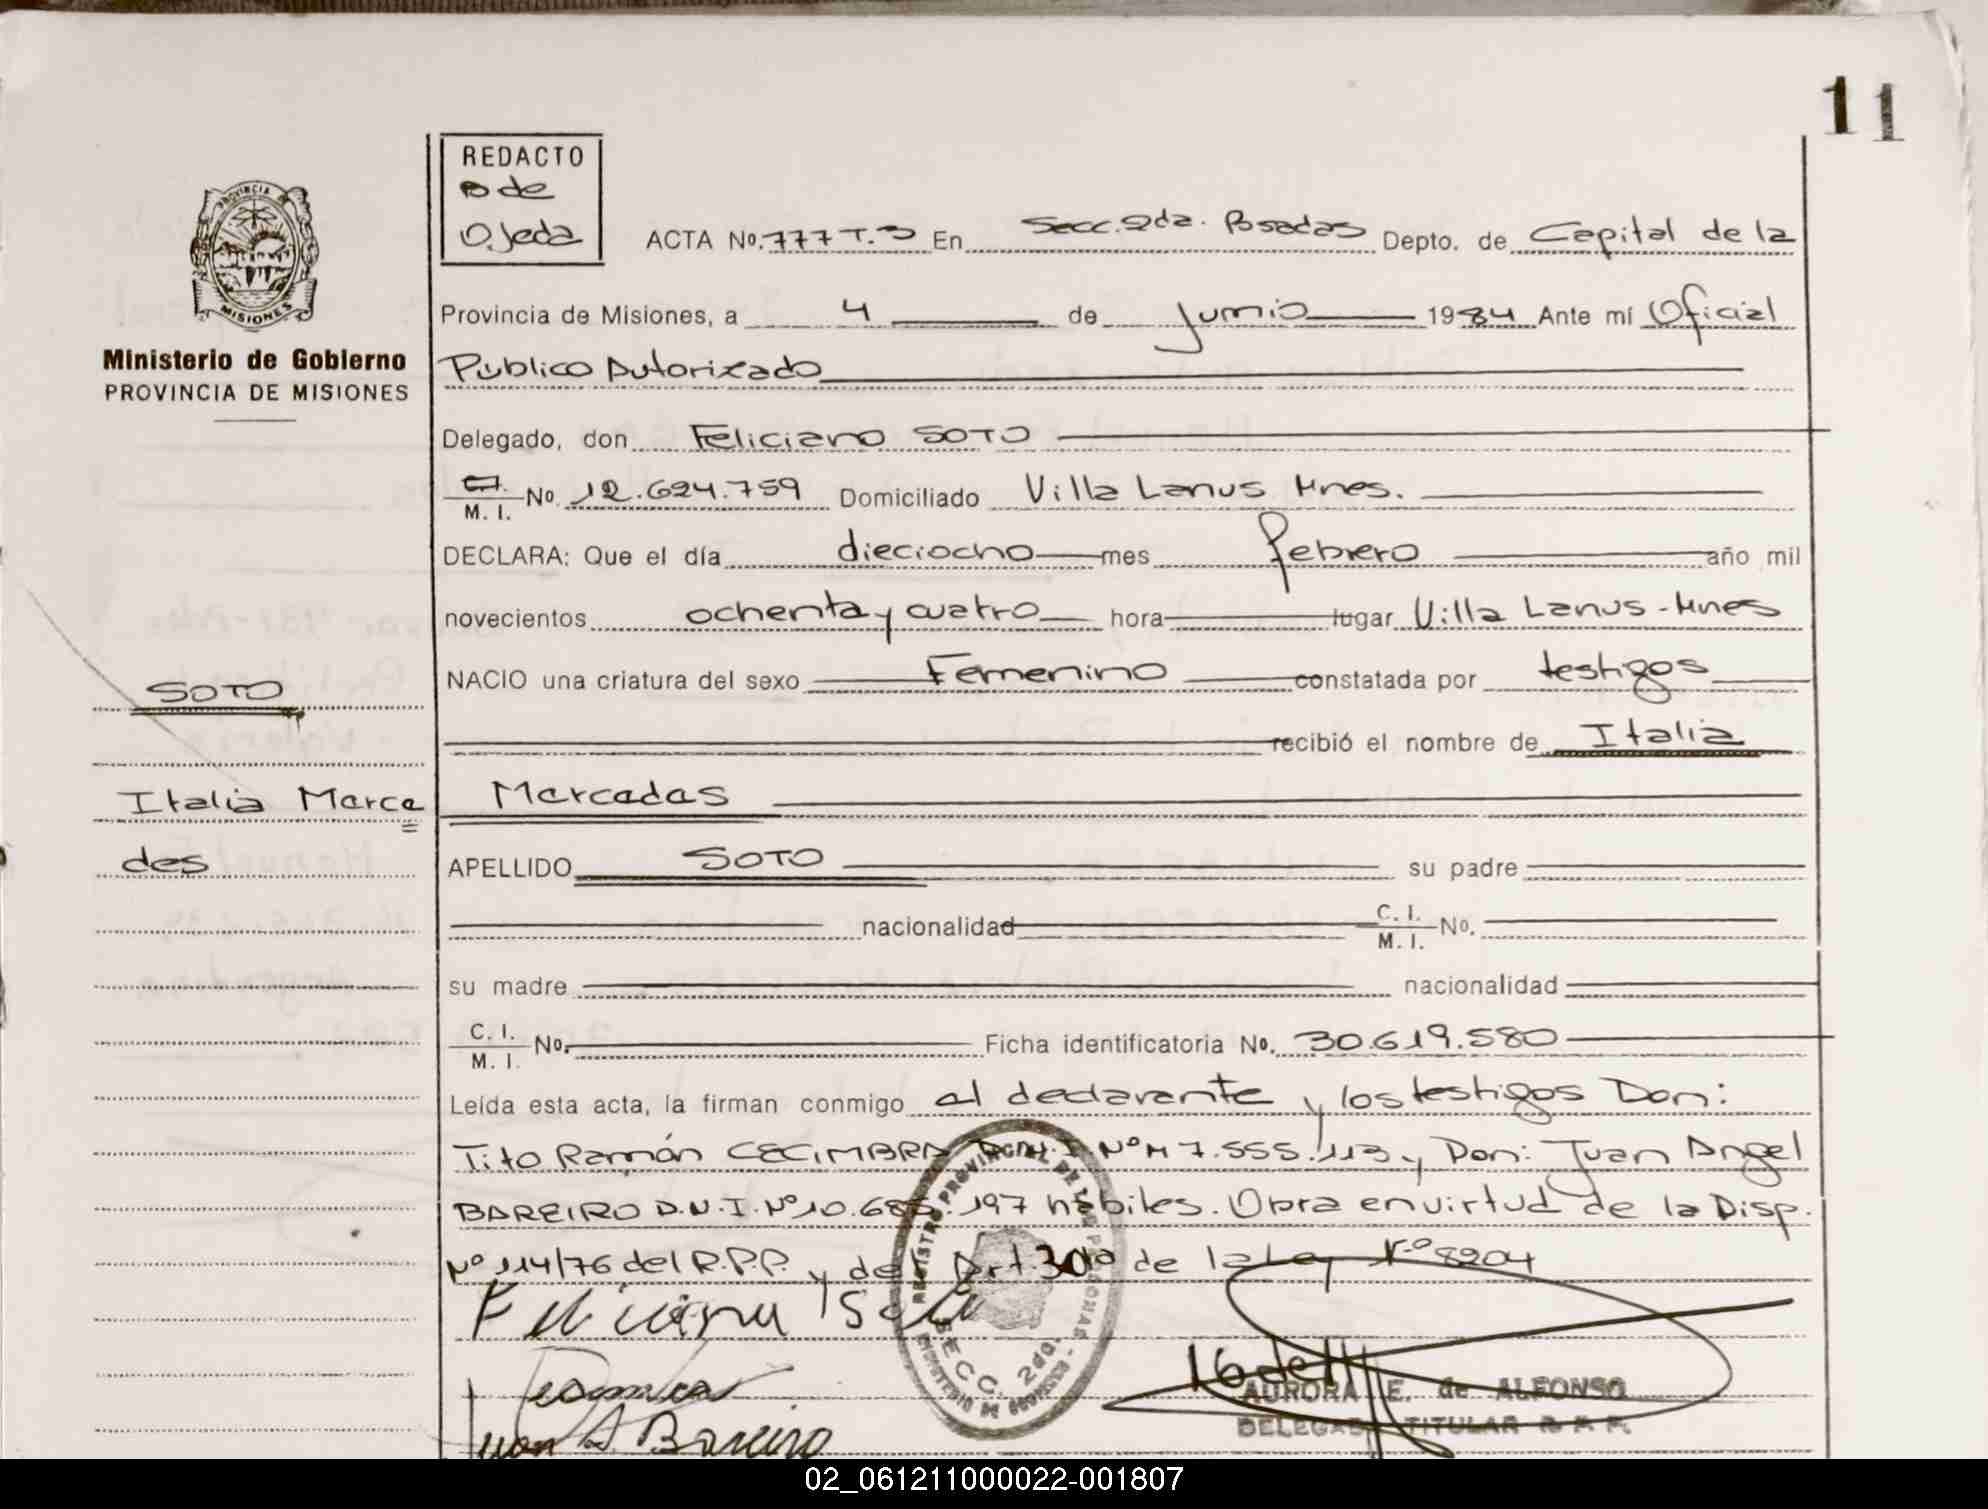 11
REDACTO
B de
Ojeda
PROVINCIA DE
MISIONES
Ministerio de Gobierno
PROVINCIA DE MISIONES
ACTA No. 777 T.3 En Secc. 2da. Posadas Depto. de Capital de la
Provincia de Misiones, a 4 de Junio 1984 Ante mí Oficial
Público Autorizado
Delegado, don Feliciano SOTO
C.I. M. I. No. 12.624.759 Domiciliado Villa Lanus Mnes.
DECLARA: Que el día dieciocho mes febrero año mil
novecientos ochenta y cuatro hora lugar Villa Lanus - Mnes
NACIO una criatura del sexo Femenino constatada por testigos
recibió el nombre de Italia
Mercedes
APELLIDO SOTO su padre
nacionalidad C. I. M. I. No.
su madre nacionalidad
C. I. M. I. No. Ficha identificatoria No. 30.619.580
Leída esta acta, la firman conmigo el declarante y los testigos Don:
Tito Ramón CECIMBRA D.N.I Nº M 7.555.113 y Don: Juan Angel
BAREIRO D.N.I. Nº 10.685.197 hábiles. Obra en virtud de la Disp.
Nº 114/76 del R.P.P. y del Art. 30 de la Ley Nº 8204
SOTO
Italia Merce
des
Feliciano Soto
Juan A Bareiro
REGISTRO PROVINCIAL DE LAS PERSONAS
MINISTERIO DE GOBIERNO
SECC. 2da.
AURORA E. de ALFONSO
DELEGADA TITULAR R. P. P.
02_061211000022-001807